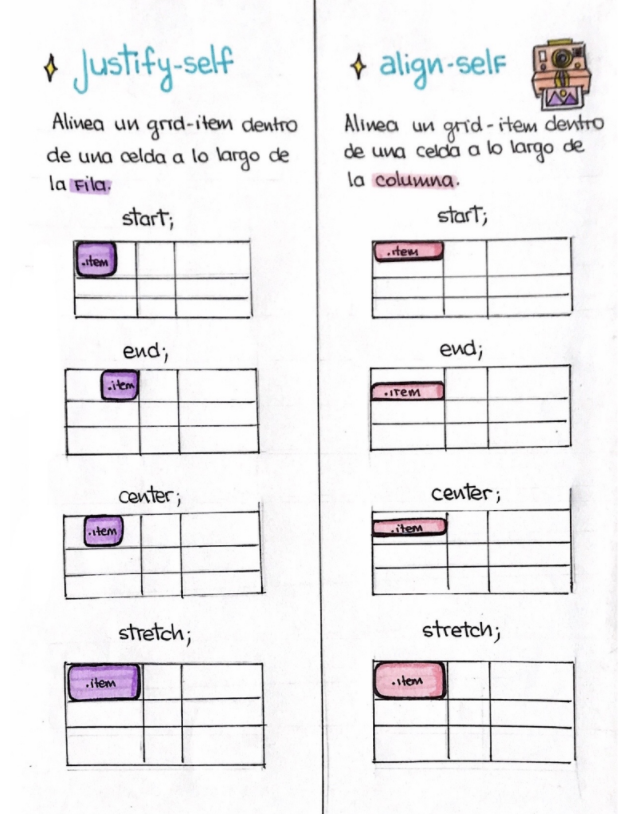 Justify-self
Alinea un grid-item dentro
de una celda a lo largo de
la Fila.
start;
.item
end;
.item
center;
.item
stretch;
.item
align-self
Alinea un grid-item dentro
de una celda a lo largo de
la columna.
start;
.item
end;
.item
center;
.item
stretch;
.item